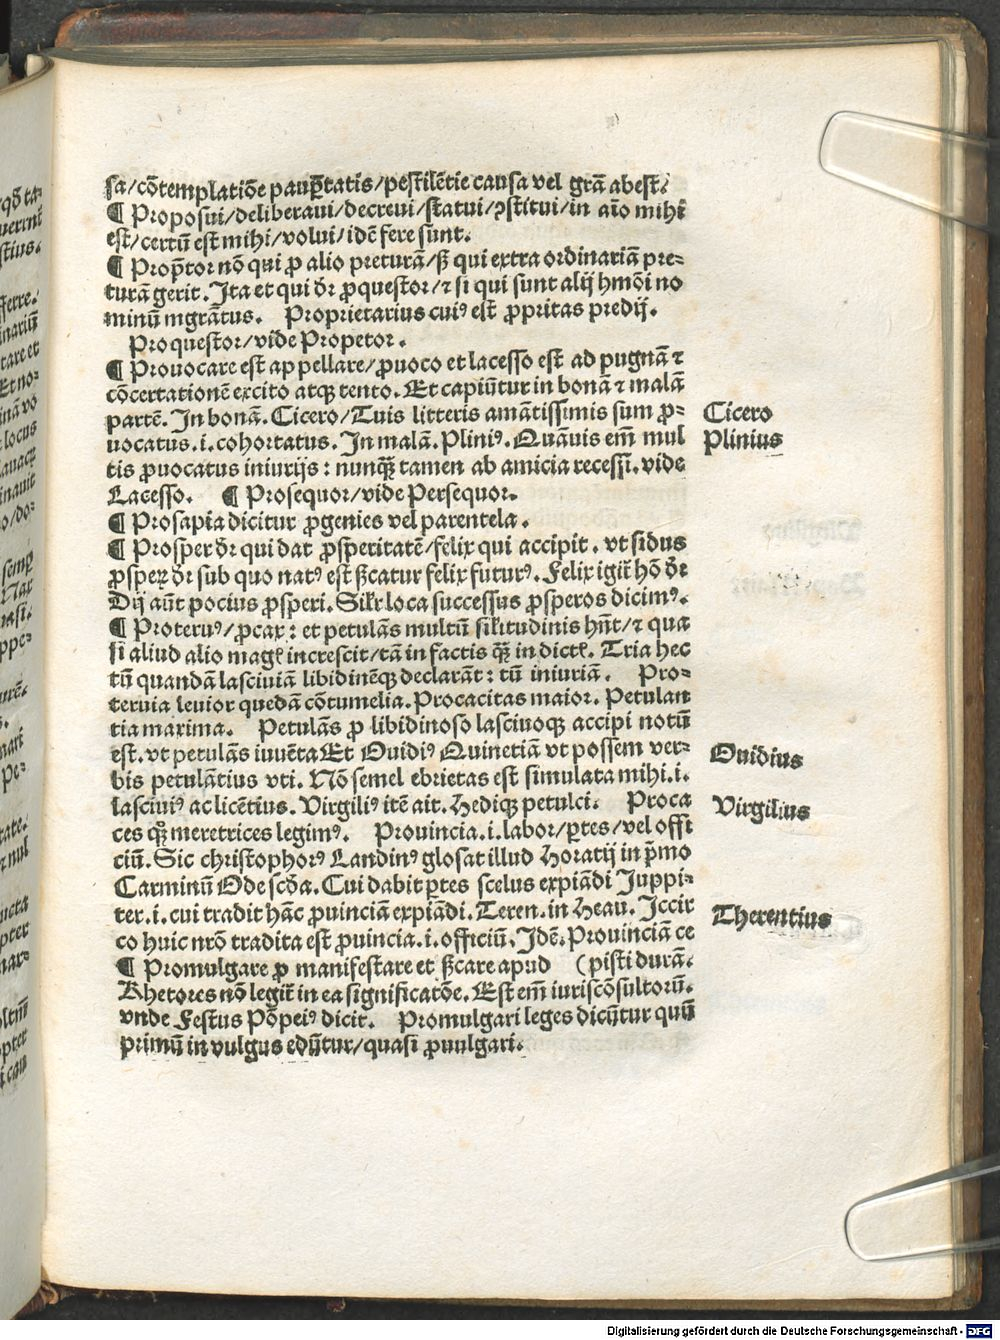 sa/cōtemplatiōe paup̄tatis/pestilētie causa vel grā abest.
¶ Proposui/deliberaui/decreui/statui/ꝯstitui/in aīo mihi
est/certū est mihi/volui/idē fere sunt.
¶ Prop̄tor nō qui ꝓ alio preturā/ſꝫ qui extra ordinariā pre-
turā gerit. Ita et qui dr̄ ꝓquestor/⁊ si qui sunt alij hmōi no
minū mgrātus. Proprietarius cuiꝰ est ꝓpritas predij.
Proquestor/vide Propetor.
¶ Prouocare est appellare/ꝓuoco et lacesso est ad pugnā ⁊
cōcertationē excito atqꝫ tento. Et capiūtur in bonā ⁊ malā
partē. In bonā. Cicero/Tuis litteris amātissimis sum ꝓ-
uocatus.i.cohortatus. In malā. Pliniꝰ. Quāuis em̄ mul
tis ꝓuocatus iniurijs: nunqꝫ̄ tamen ab amicia recessi. vide
Lacesso. ¶ Prosequor/vide Persequor.
¶ Prosapia dicitur ꝓgenies vel parentela.
¶ Prosper dr̄ qui dat ꝓsperitatē/felix qui accipit. vt sidus
ꝓsperꝫ dr̄ sub quo natꝰ est ſꝫcatur felix futurꝰ. Felix igit̄ hō dr̄
Dij aūt pocius ꝓsperi. Silr̄ loca successus ꝓsperos dicimꝰ.
¶ Proteruꝰ/ꝓcax: et petulās multū sil̄itudinis hn̄t/⁊ qua
si aliud alio magꝭ increscit/tā in factis qꝫ̄ in dictꝭ. Tria hec
tū quandā lasciuiā libidinēqꝫ declarāt: tū iniuriā. Pro-
teruia leuior quedā cōtumelia. Procacitas maior. Petulan
tia maxima. Petulās ꝓ libidinoso lasciuoqꝫ accipi notū
est. vt petulās iuuēta Et Ouidiꝰ Quinetiā vt possem ver-
bis petulātius vti. Nō semel ebrietas est simulata mihi.i.
lasciuiꝰ ac licētius. Virgiliꝰ itē ait. Hediqꝫ petulci. Proca
ces qꝫ̄ meretrices legimꝰ. Prouincia.i.labor/ꝑtes/vel offi
ciū. Sic christophorꝰ Landinꝰ glosat illud Horatij in p̄mo
Carminū Ode scd̄a. Cui dabit ꝑtes scelus expiādi Juppi-
ter.i. cui tradit hāc ꝓuinciā expiādi. Teren. in Heau. Iccir
co huic nr̄o tradita est ꝓuincia.i.officiū. Idē. Prouinciā ce
¶ Promulgare ꝓ manifestare et ſꝫcare apud (pisti durā.
Rhetores nō legit̄ in ea significatōe. Est em̄ iuriscōsultorū.
vnde Festus Pōpeiꝰ dicit. Promulgari leges dicūtur quū
primū in vulgus edūtur/quasi ꝓuulgari.
Cicero
Plinius
Ouidius
Virgilius
Therentius
Digitalisierung gefördert durch die Deutsche Forschungsgemeinschaft - DFG